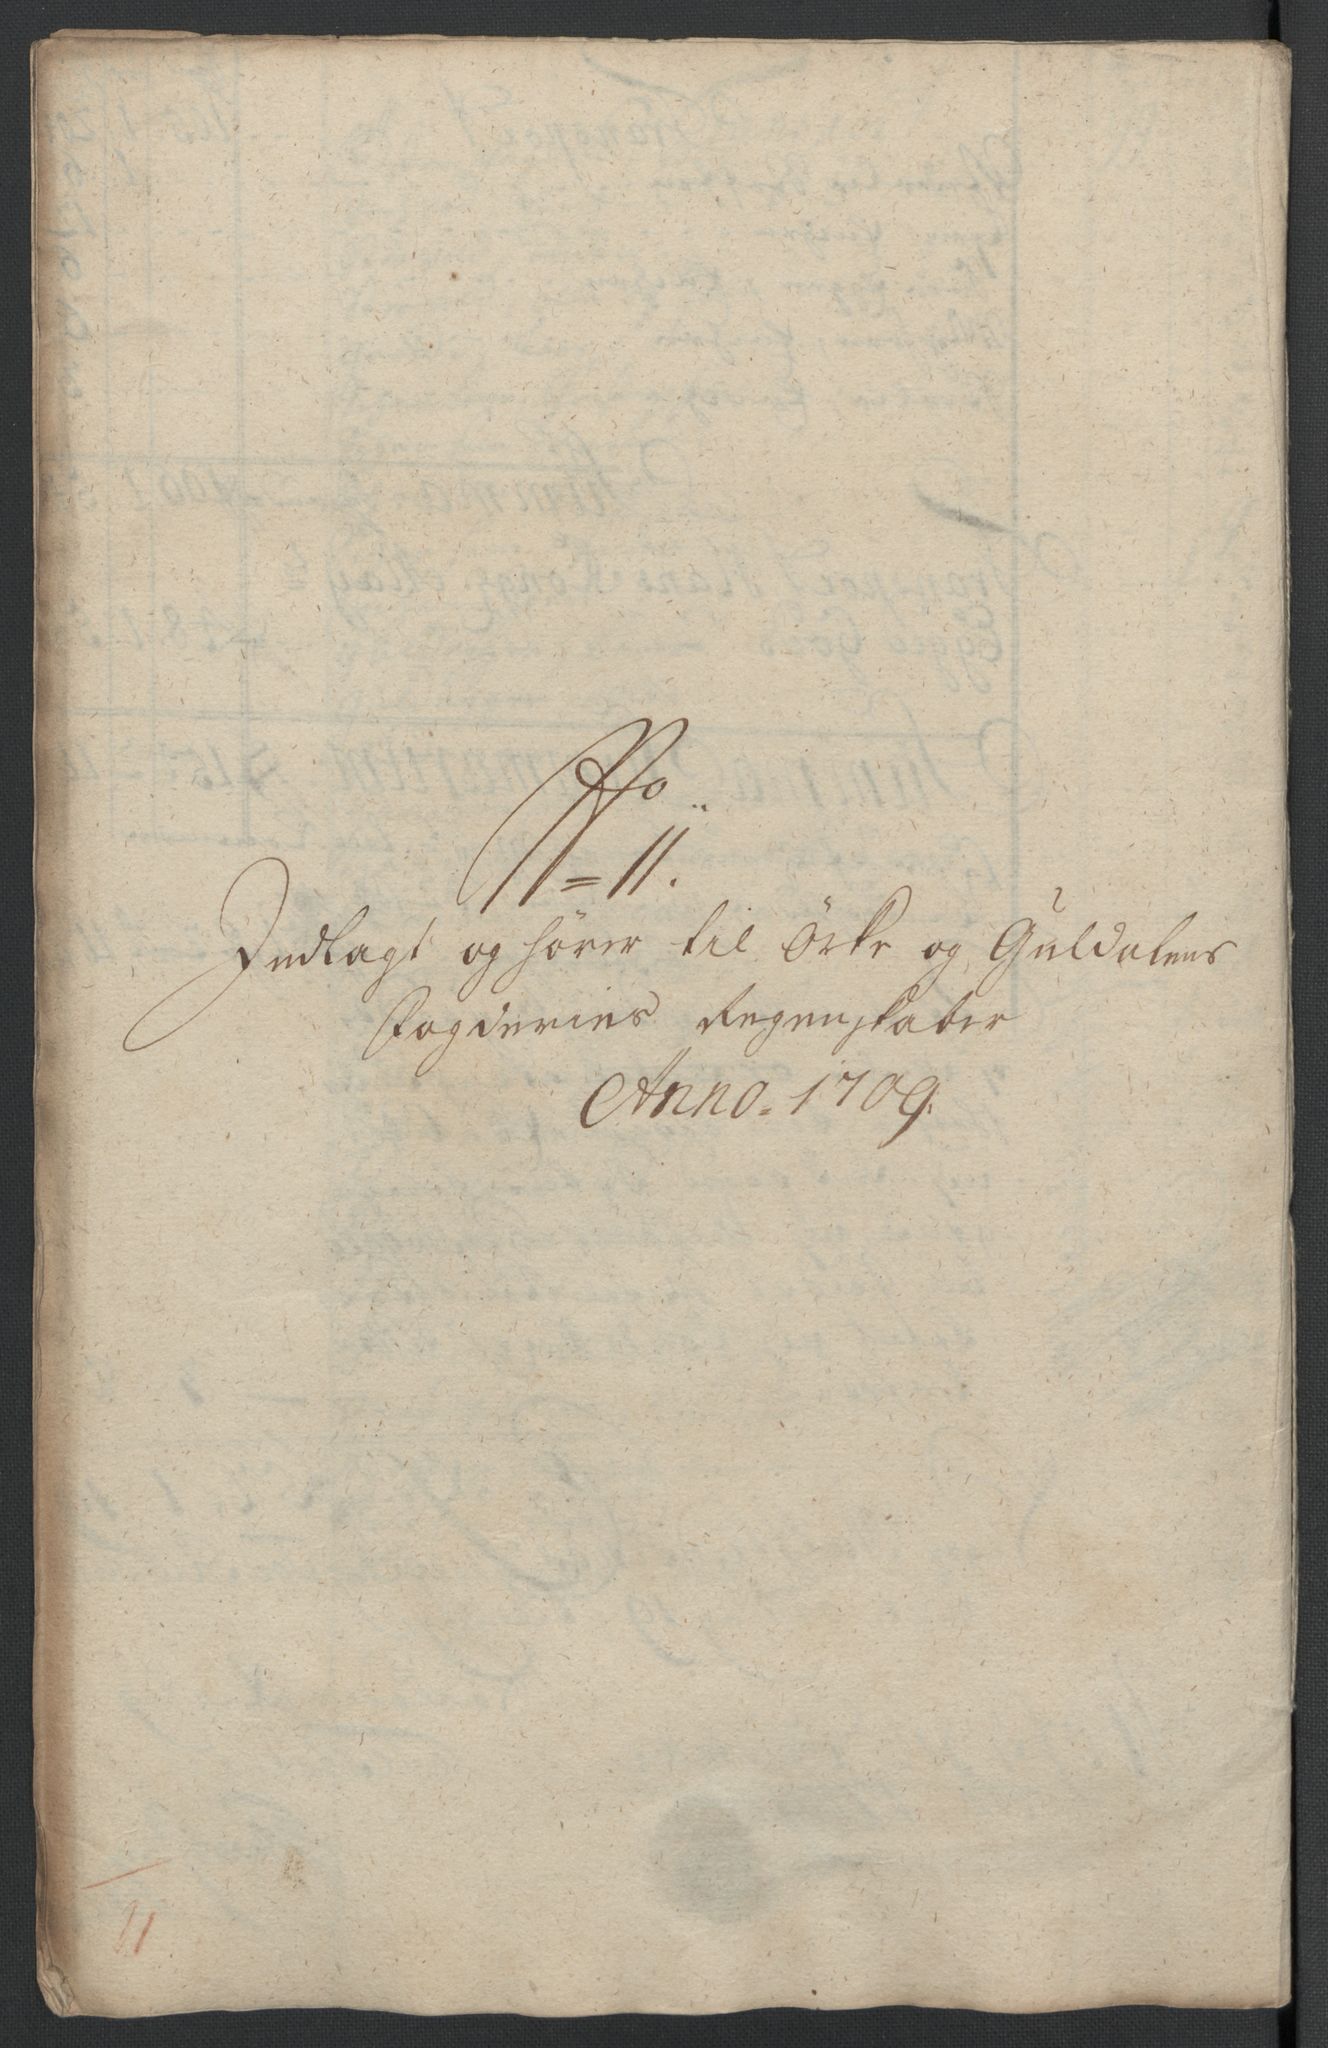 No
11.
Indlagt og hörer til Örke og Guldalens
Fogderies Regenskaber
Anno. 1709.
11